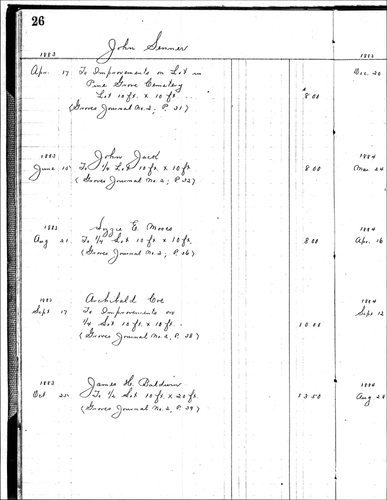 26
John Senner
1883 1882
Apr. 17 To Improvements on Lot in Dec. 20
Pine Grove Cemetery
Lot 10 ft. x 10 ft. 8 00
(Groves Journal No. 2, P. 31)
1883 John Jack 1884
June 15 To 1/4 Lot 10 ft. x 10 ft. 8 00 Mar 24
(Groves Journal No. 2, P. 32)
1883 E. Moores 1884
Aug 21 To 1/4 Lot 10 ft. x 10 ft. 8 00 Apr. 16
(Groves Journal No. 2, P. 36)
1883 Archibald Coe 1884
Sept 17 To Improvements on Sept 12
1/4 Lot 10 ft. x 10 ft. 10 00
(Groves Journal No. 2, P. 38)
1883 James H. Baldwin
Oct 25 To 1/2 Lot 10 ft. x 20 ft. 13 50 Aug 28
(Groves Journal No. 2, P. 39)